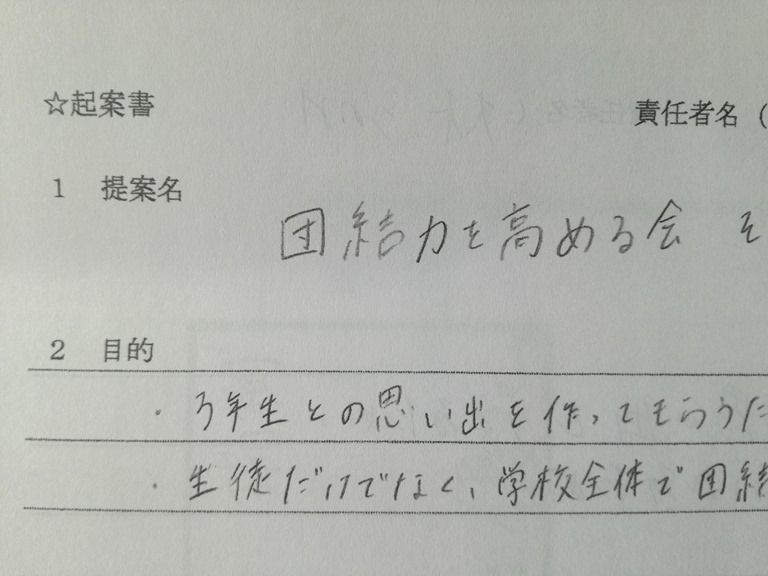 ☆起案書 責任者名（
1 提案名
団結力を高める会 そ
2 目的
・3年生との思い出を作ってもらうた
・生徒だけでなく、学校全体で団結